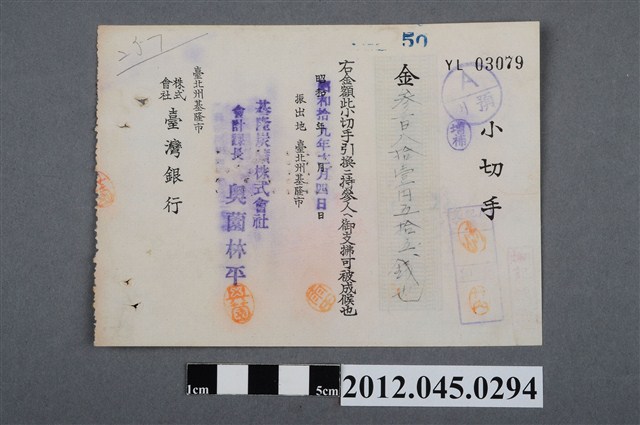 257
50
YL 03079
A
小切手
金 参百八拾壹円五拾五銭也
右金額此小切手引換ニ持參人へ御支拂可被成候也
昭和拾九年 月四日
振出地 臺北州基隆市
基隆炭礦株式會社
會計課長 奥薗林平
臺北州基隆市
株式會社 臺灣銀行
1cm
5cm
2012.045.0294